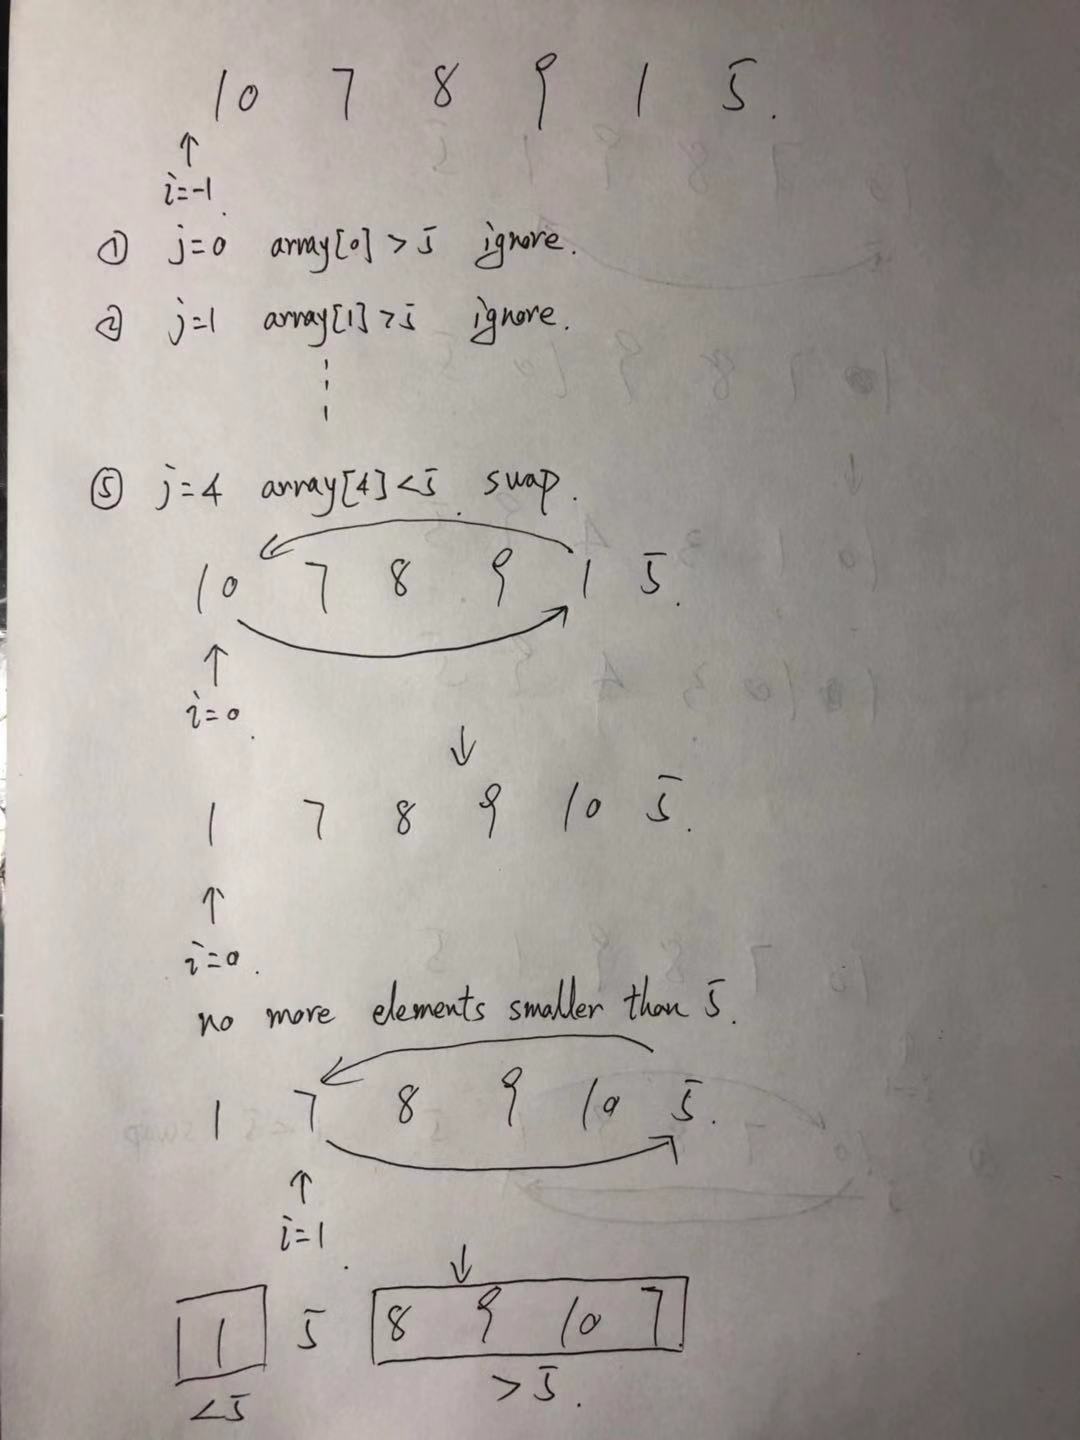 10 7 8 9 1 5.
↑
i=-1.
① j=0 array[0]>5 ignore.
② j=1 array[1]>5 ignore.
⑤ j=4 array[4]<5 swap.
10 7 8 9 1 5.
↑
i=0.
↓
1 7 8 9 10 5.
↑
i=0.
no more elements smaller than 5.
1 7 8 9 10 5.
↑
i=1.
↓
1 5 8 9 10 7
<5 >5.